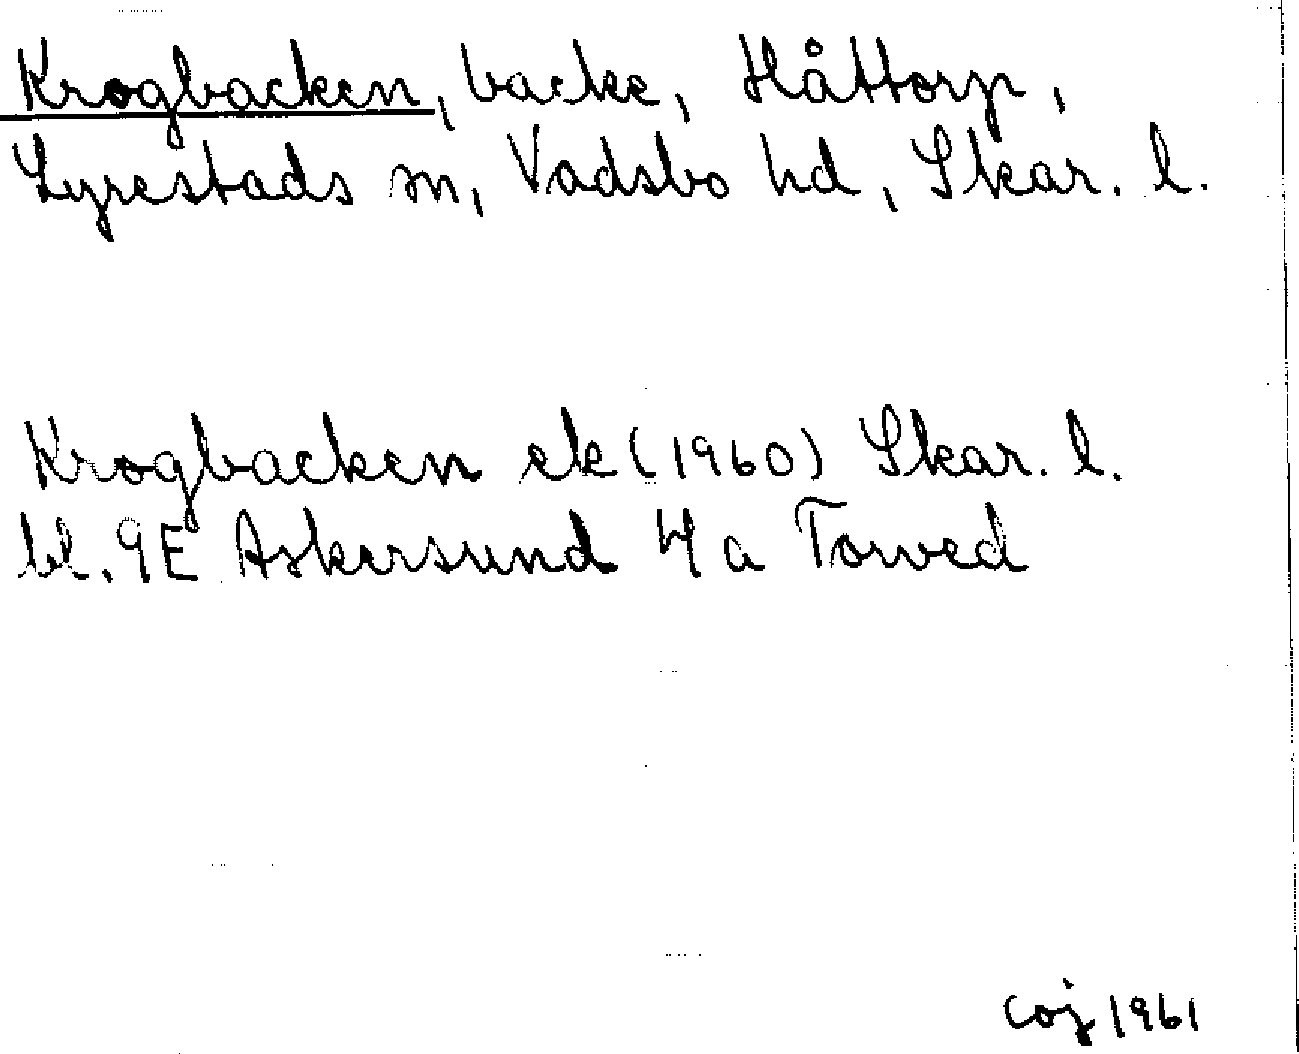 Krogbacken, backe, Håttorp,
Lyrestads sn, Vadsbo hd, Skar. l.
Krogbacken ek (1960) Skar. l.
bl. 9E Askersund 4a Torved
coj 1961